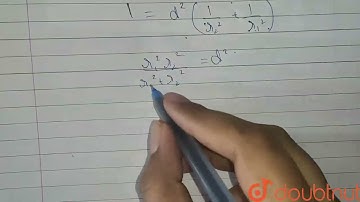 1 = d² (1/r₂² + 1/r₁²)
r₁² r₂² / r₁² + r₂² = d²
doubtnut